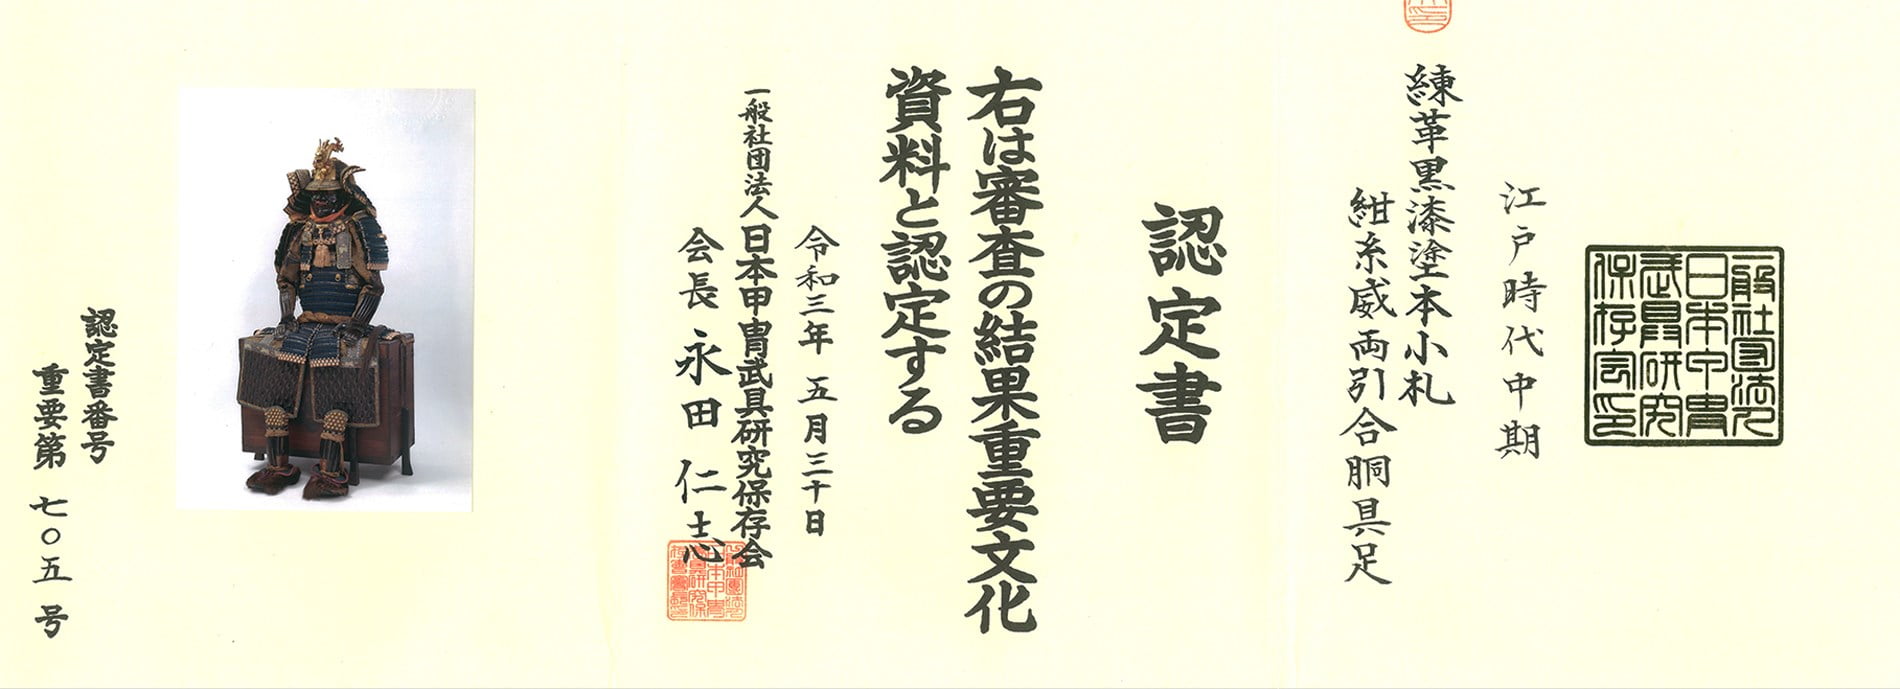 一般社団法人
日本甲冑
武具研究
保存会印
江戸時代中期
練革黒漆塗本小札
紺糸威両引合胴具足
認定書
右は審査の結果重要文化
資料と認定する
令和三年 五月三十日
一般社団法人日本甲冑武具研究保存会
会長 永田 仁志
認定書番号
重要第 七〇五 号